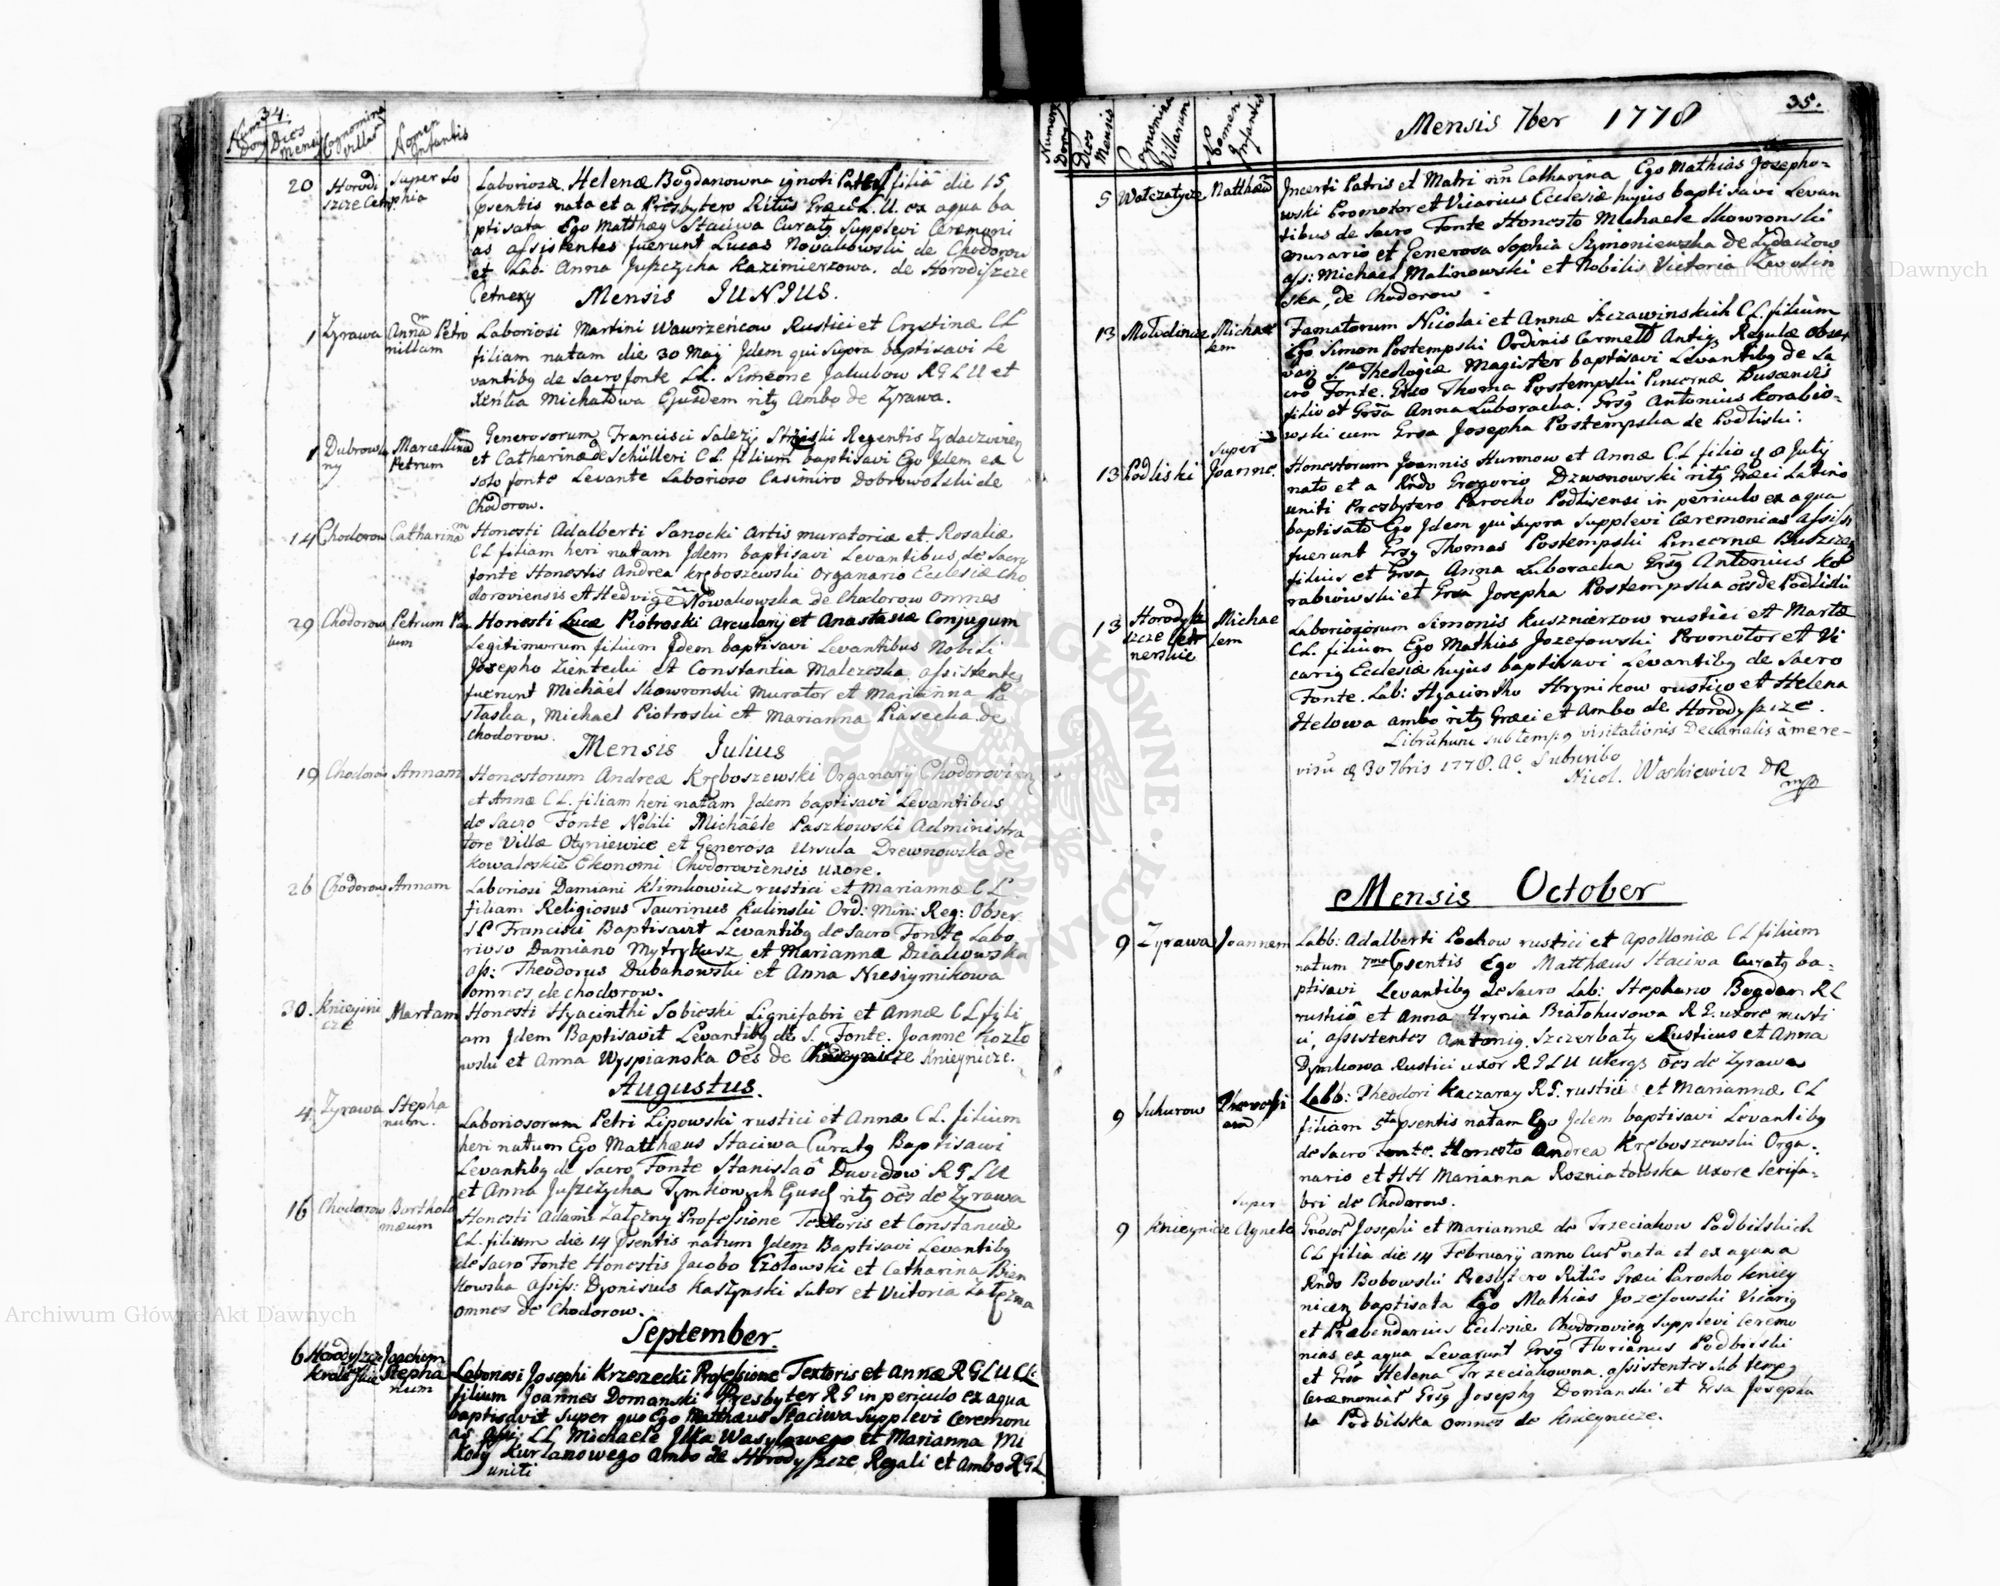 34.
Dies Mensis
Cognomina villar
Nomen Infantis
20 Horodi szcze Cetn. Super So phia
Laboriosæ Helenæ Bogdanowna ignoti Patris filiã die 15
psentis nata et a Presbytero Ritûs Græci L. U. ex aqua ba
ptisata Ego Matthæy Staciwa Curatq Supplevi Ceremoni
as assistentes fuerunt Lucas Novakowski de Chodorow
et Lab: Anna Juszczycha Kazimierzowa. de Horodiszcze
Cetnery Mensis IUNIUS.
1 Zyrawa Annam Petro nillam
Laboriosi Martini Wawrzeńcow Rustici et Crystinæ CL
filiam natam die 30 Maij Idem qui Supra baptisavi Le
vantibq de sacro fonte LL. Simeone Jakubow RGLU et
Xenia Michałowa Ejusdem ritq Ambo de Zyrawa.
1 Dubrowla ny Marcellinum Petrum
Generosorum Francisci Salezij Regentis Zydaczovien
et Catharinæ de Schülleri CL. filium baptisavi Ego Idem ex
solo fonte Levante Laborioso Casimiro Dobrowolski de
Chodorow.
14 Chodorow Catharinam
Honesti Adalberti Sanocki Artis muratoriæ et Rosaliæ
CL filiam heri natam Idem baptisavi Levantibus de Sacro
fonte Honestis Andrea Kręboszewski Organario Ecclesiæ Cho
doroviensis et Hedvige Nowakowska de Chodorow omnes
29 Chodorow Petrum Pa ulum
Honesti Lucæ Piotroski Arcularij et Anastasiæ Conjugum
Legitimorum filium Idem baptisavi Levantibus Nobili
Josepho Zientecki et Constantia Malczeska, assistentes
fuerunt Michaël Skowronski Murator et Marianna Pa
staska, Michael Piotroski et Marianna Piasecka de
Chodorow.
Mensis Julius
19 Chodorow Annam
Honestorum Andreæ Kręboszewski Organarij Chodorovien
et Annæ CL. filiam heri natam Idem baptisavi Levantibus
de Sacro Fonte Nobili Michaële Paszkowski Administra
tore Villæ Otyniewice et Generosa Ursula Drewnowska de
Kowaleskie Ekonomi Chodoroviensis uxore.
26 Chodorow Annam
Laboriosi Damiani Klimkowicz rustici et Mariannæ CL
filiam Religiosus Taurinus Kulinski Ord: Min: Reg: Obser
S P Francisci Baptisavit Levantibq de Sacro Fonte Labo
rioso Damiano Mytrykusz et Mariannæ Dzialowska
ass: Theodorus Dubanowski et Anna Niesiymikowa
omnes de Chodorow.
30. Knieyini cze Martam
Honesti Hyacinthi Sobieski Lignifabri et Annæ CL fili
am Idem Baptisavit Levantibq de S. Fonte. Joanne Kozło
wski et Anna Wyspianska oes de Knieynicze.
Augustus.
4. Zyrawa Stepha num.
Laboriosorum Petri Lipowski rustici et Annæ CL. filium
heri natum Ego Matthæus Staciwa Curatq Baptisavi
Levantibq de Sacro Fonte Stanislaô Davidow RGLU
et Anna Juszczycha Tymkowych Ejusd ritq oes de Zyrawa
16 Chodorow Bartholo mæum
Honesti Adami Zalęzny Professione Textoris et Constantiæ
CL. filium die 14 psentis natum Idem Baptisavi Levantibq
de Sacro Fonte Honestis Jacobo Czołowski et Catharina Bien
kowska assiss: Dyonisius Kaszynski Sutor et Victoria Zalęzna
omnes de Chodorow.
September.
6 Horodyszcze Krolewskie Joachim Stepha num
Laboriosi Josephi Krzerzecki Professione Textoris et Annæ RGLU CL:
filium Joannes Domanski Presbyter RG in periculo ex aqua
baptisavit Super quo Ego Matthæus Staciwa Supplevi Ceremoni
as assi: LL Michaele Ilka Wasylowego et Marianna Mi
koły Kurlanowego Ambo de Horodyszcze Regali et Ambo RGL
uniti
Numerus Dorz
Dies Mensis
Cognomina Villarum
Nomen Infantis
Mensis 7ber 1778
35.
5 Wołczatycze Matthæum
Incerti Patris et Matri nn Catharina Ego Mathias Josepho-
wski Promotor et Vicarius Ecclesiæ hujus baptisavi Levan
tibus de Sacro Fonte Honesto Michaele Skowronski
murario et Generosa Sophia Szymoniewska de Zydaczow
ass: Michael Malinowski et Nobilis Victoria Zwolin
ska, de Chodorow.
13 Mołodincze Michae lem
Famatorum Nicolai et Annæ Szczawinskich CL. filium
Ego Simon Postempski Ordinis Carmelit Antiq Regulæ Obser
van S. Theologiæ Magister baptisavi Levantibq de Sa
cro Fonte. Grso Thoma Postempski Pincernæ Buscensis
filio et Grsa Anna Luboracka. Grsq Antonius Korabio=
wski cum Grsa Josepha Postempska de Podliski.
13 Podliski Super Joanne.
Honestorum Joannis Hurmow et Annæ CL filio q 8 July
nato et a Rndo Gregorio Dzwonowski ritq Græci Latino
uniti Presbytero Parocho Podlisensi in periculo ex aqua
baptisato Ego Idem qui Supra Supplevi Cæremonias assiss
fuerunt Grsq Thomas Postempski Pincernæ
filius et Grsa Anna Luboracka Grsq Antonius Ko
rabiowski et Grsa Josepha Postempska oes de Podliski
13 Horodysz szcze Cet nerskie Michae lem
Laboriosorum Simonis Kusznierzow rustici et Martæ
CL. filium Ego Mathias Jozefowski Promotor et Vi
cariq Ecclesiæ hujus baptisavi Levantibq de Sacro
Fonte. Lab: Hyacintho Hrynikow rustico et Helena
Helowa ambo ritq Græci et Ambo de Horodyszcze.
Librum hunc sub tempq visitationis Decanalis a me re-
visũ 30 7bris 1778. Ao. Subscribo
Nicol. Waskiewicz DR
mp
Mensis October
9 Zyrawa Joannem
Labb: Adalberti Pachow rustici et Apolloniæ CL filium
natum 7ma psentis Ego Matthæus Staciwa Curatq ba=
ptisavi Levantibq de Sacro Lab: Stephano Bogdan RL
rustico et Anna Hrynia Białohusowa RG. uxore rusti
ci, assistentes Antoniq Szczerbaty Rusticus et Anna
Dymkowa Rustici uxor RGLU Uterq oes de Zyrawa
9 Sukurow
Labb: Theodori Kaczaray RG. rustici et Mariannæ CL
filiam 5ta psentis natam Ego Idem baptisavi Levantibq
de Sacro Fonte. Honesto Andrea Kręboszewski Orga-
nario et HH Marianna Rozniatowska uxore Serifa-
bri de Chodorow.
9 Knieynicze Super Agnete
Gnosor Josephi et Mariannæ de Trzeciakow Podbilskich
CL filia die 14 Februarij anno Curr nata et ex aqua a
Rndo Bobowski Presbytero Ritûs Græci Parocho Kniey
nicen baptisata Ego Mathias Jozefowski Vicariq
et Præbendarius Ecclesiæ Chodorovien Supplevi Ceremo
nias ex aqua Levarunt Grsq Florianus Podbirski
et Grsa Helena Trzeciakowna assistentes sub tempq
Ceræmoniar Grsq Josephq Domanski et Grsa Josepha
ta Podbilska omnes de Knieynicze.
Archiwum Główne Akt Dawnych
Archiwum Główne Akt Dawnych